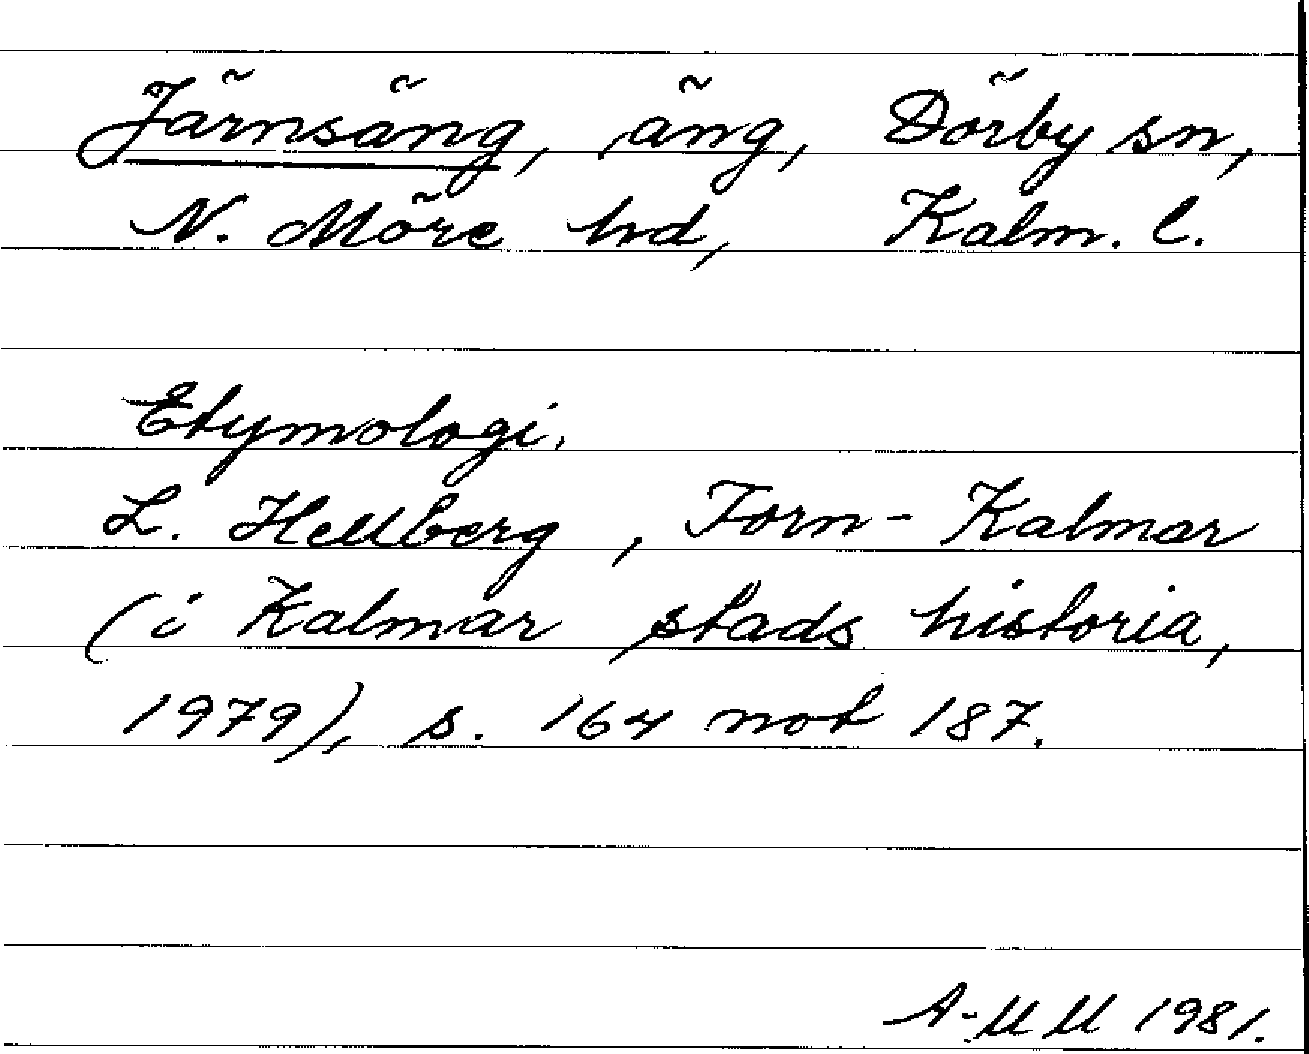 Järnsäng, äng, Dörby sn,
N. Möre hd, Kalm. l.
Etymologi.
L. Hellberg, Forn-Kalmar
(i Kalmar stads historia,
1979), s. 164 not 187.
A-MM 1981.